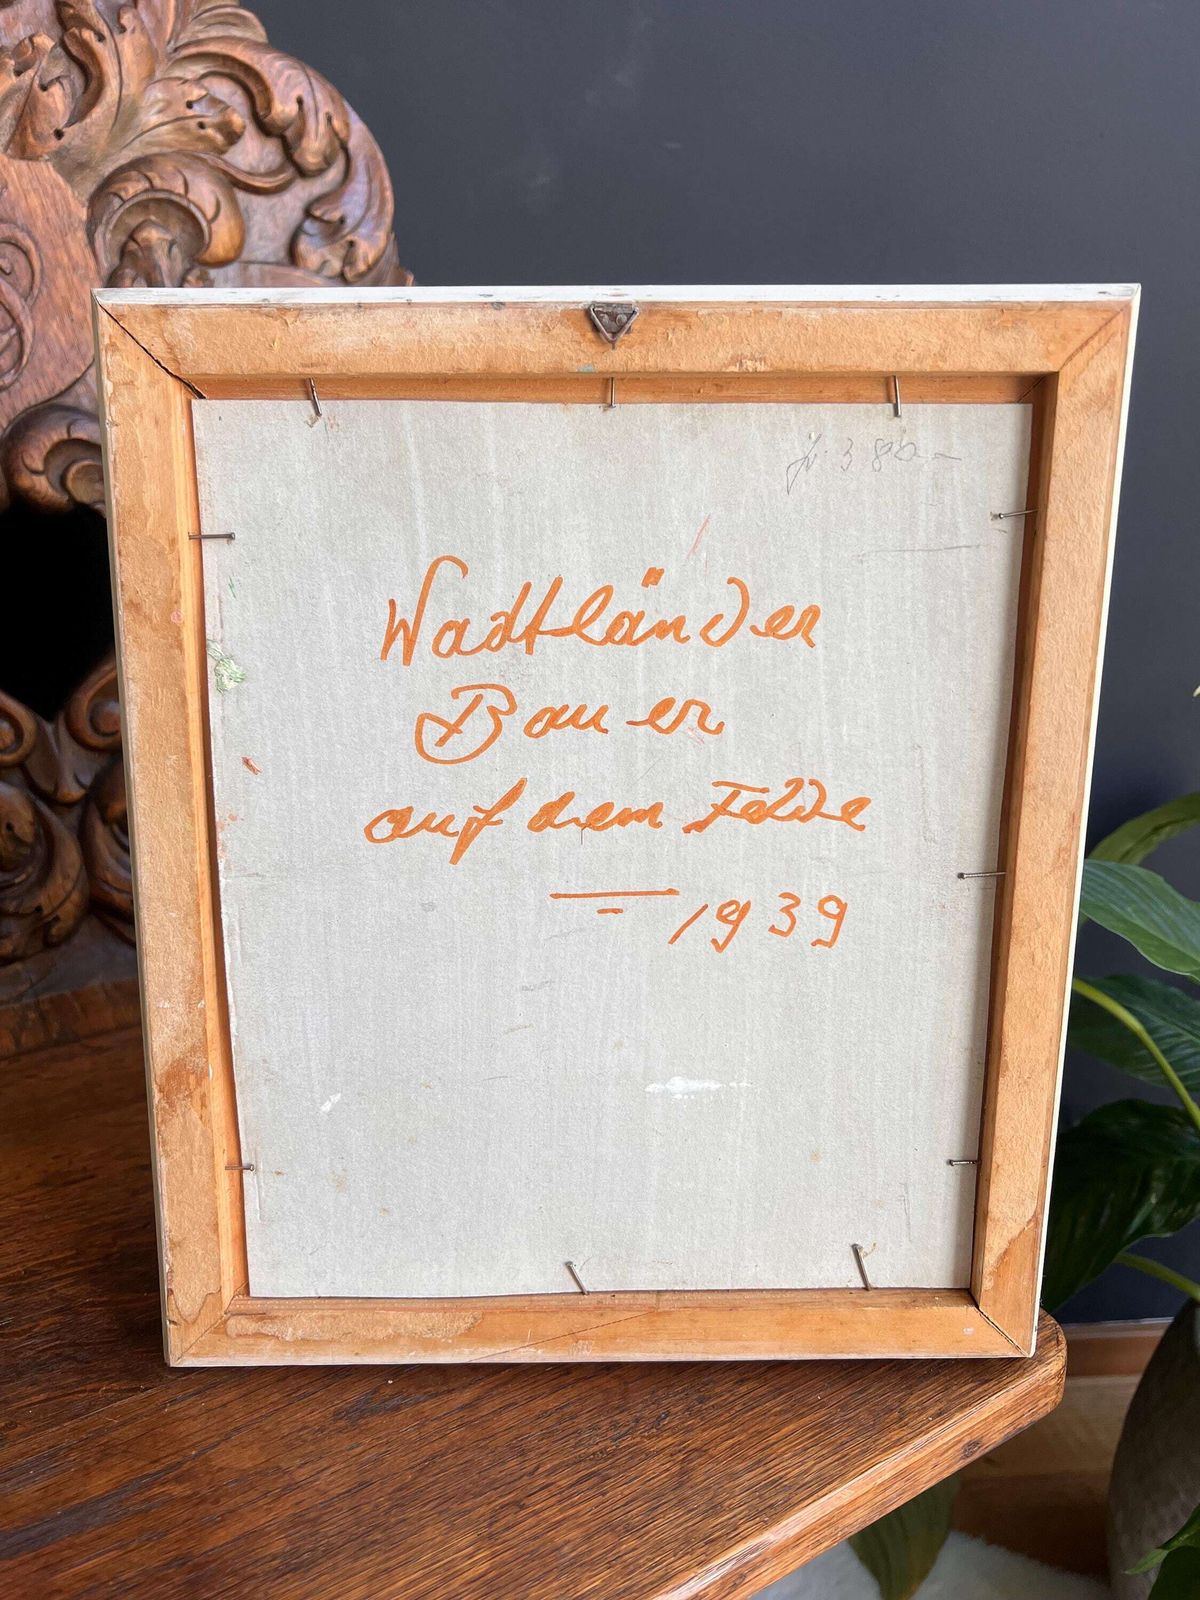 Wadtländer
Bauer
auf dem Felde
1939